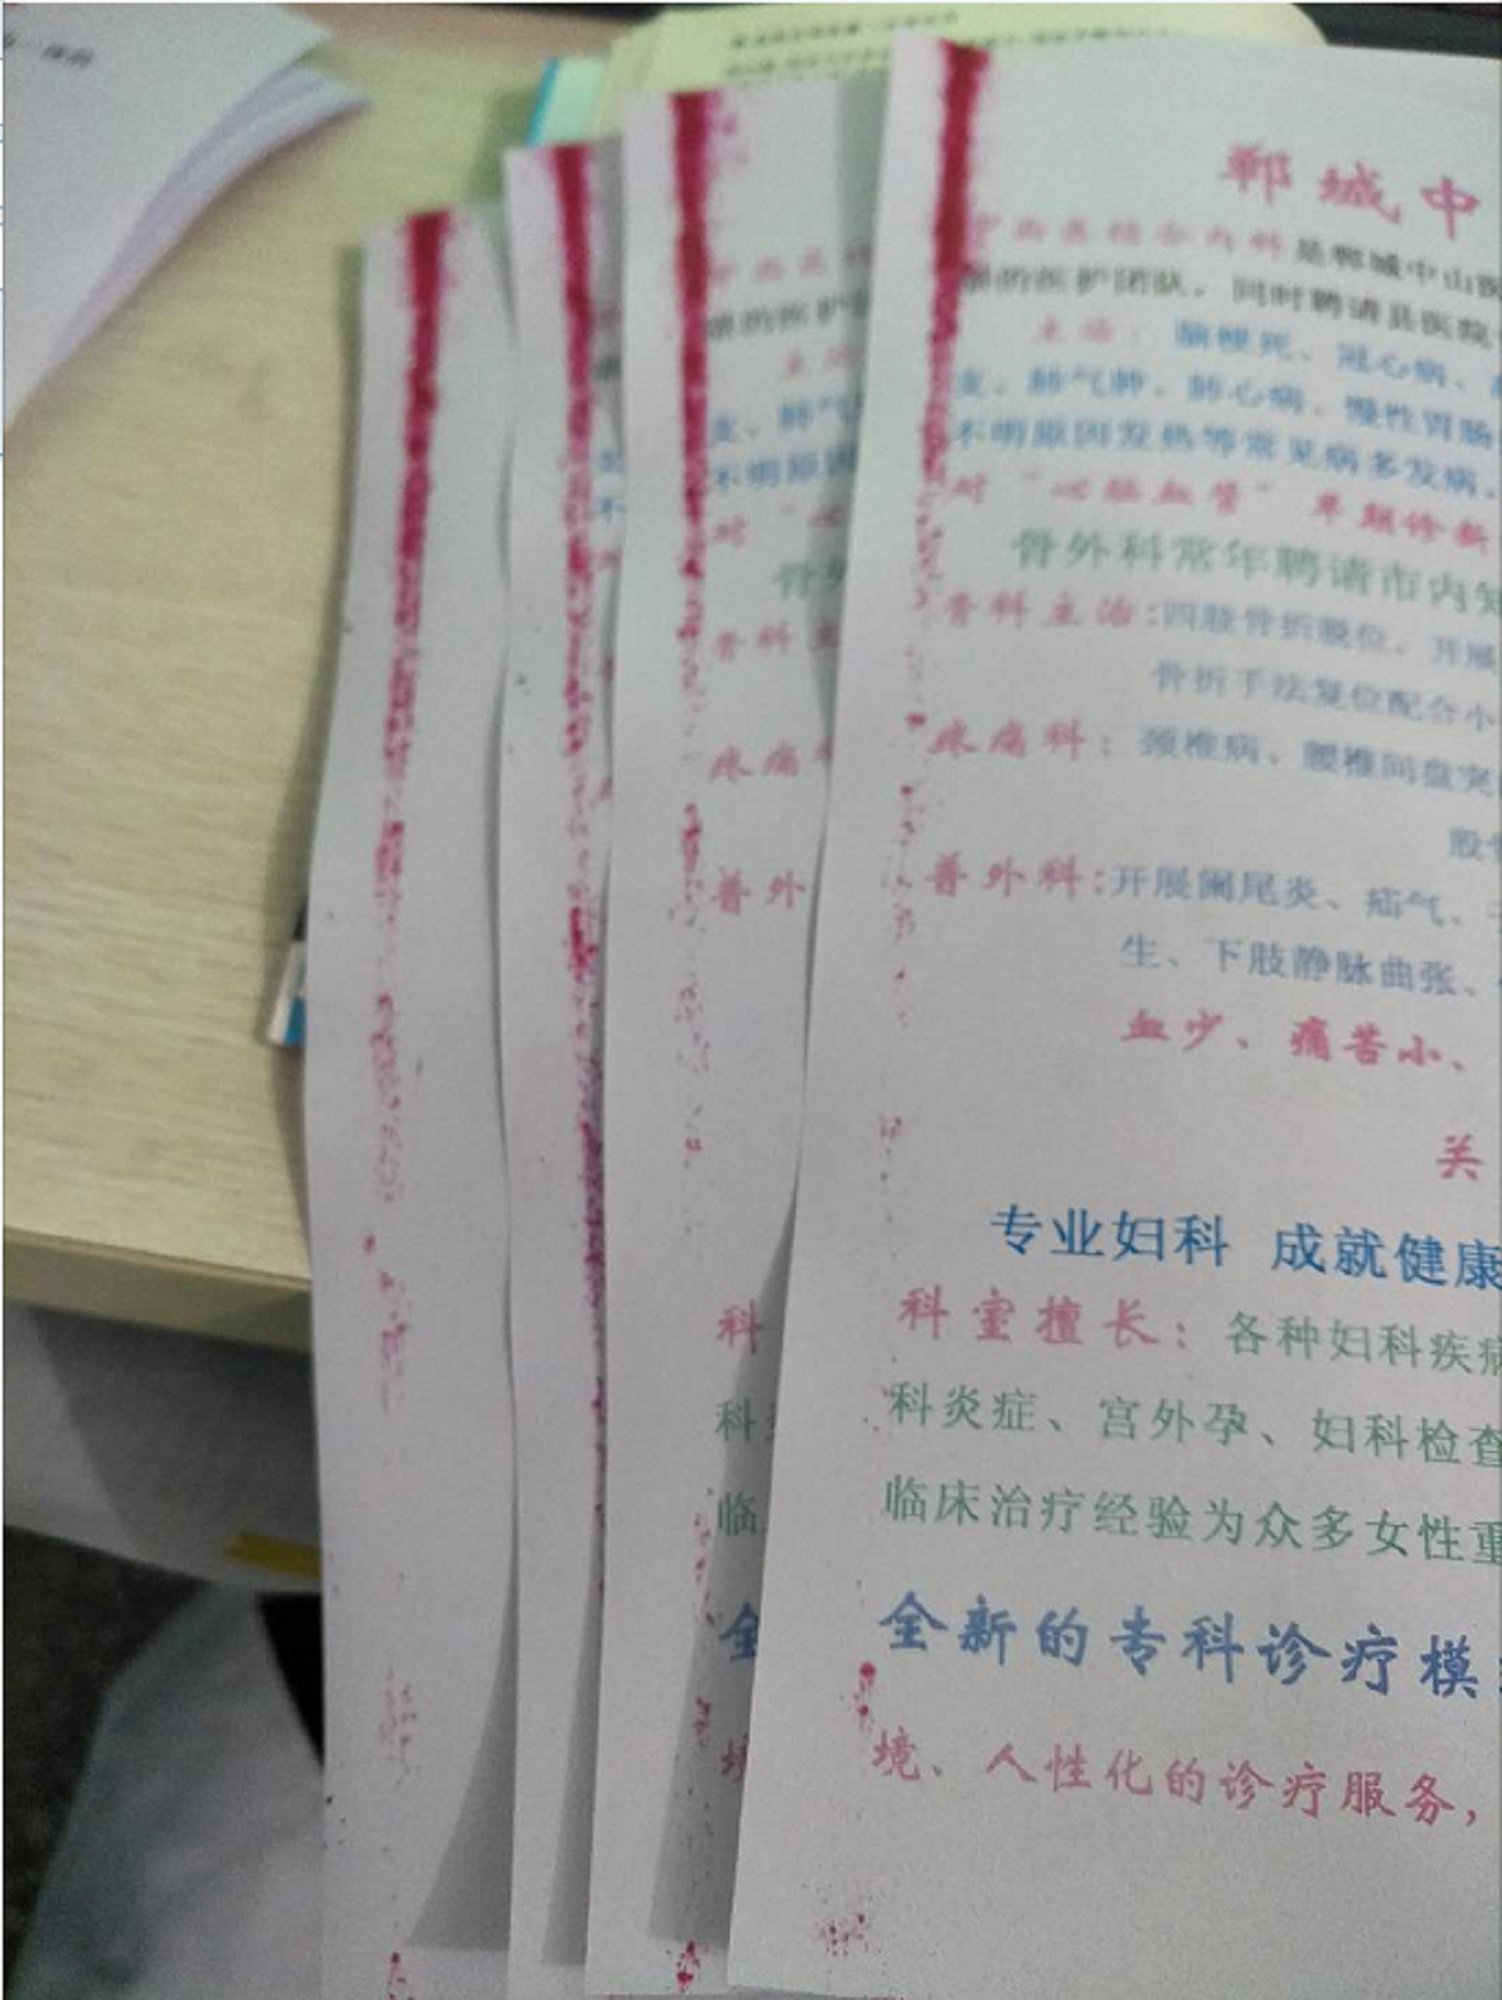 郸城中
中西医结合内科是郸城中山医
的医护团队，同时聘请县医院
主治：脑梗死、冠心病、
支、肺气肿、肺心病、慢性胃肠
不明原因发热等常见病多发病。
对“心脑血管”早期诊断
骨外科常年聘请市内知
骨科主治:四肢骨折脱位，开展
骨折手法复位配合小
疼痛科：颈椎病、腰椎间盘突
股骨
普外科:开展阑尾炎、疝气、
生、下肢静脉曲张、
血少、痛苦小、
关
专业妇科 成就健康
科室擅长：各种妇科疾病
科炎症、宫外孕、妇科检查
临床治疗经验为众多女性重
全新的专科诊疗模
境、人性化的诊疗服务，
不明原因
对“心
骨外
骨科主
疼痛
普外
科
科
临
全
境